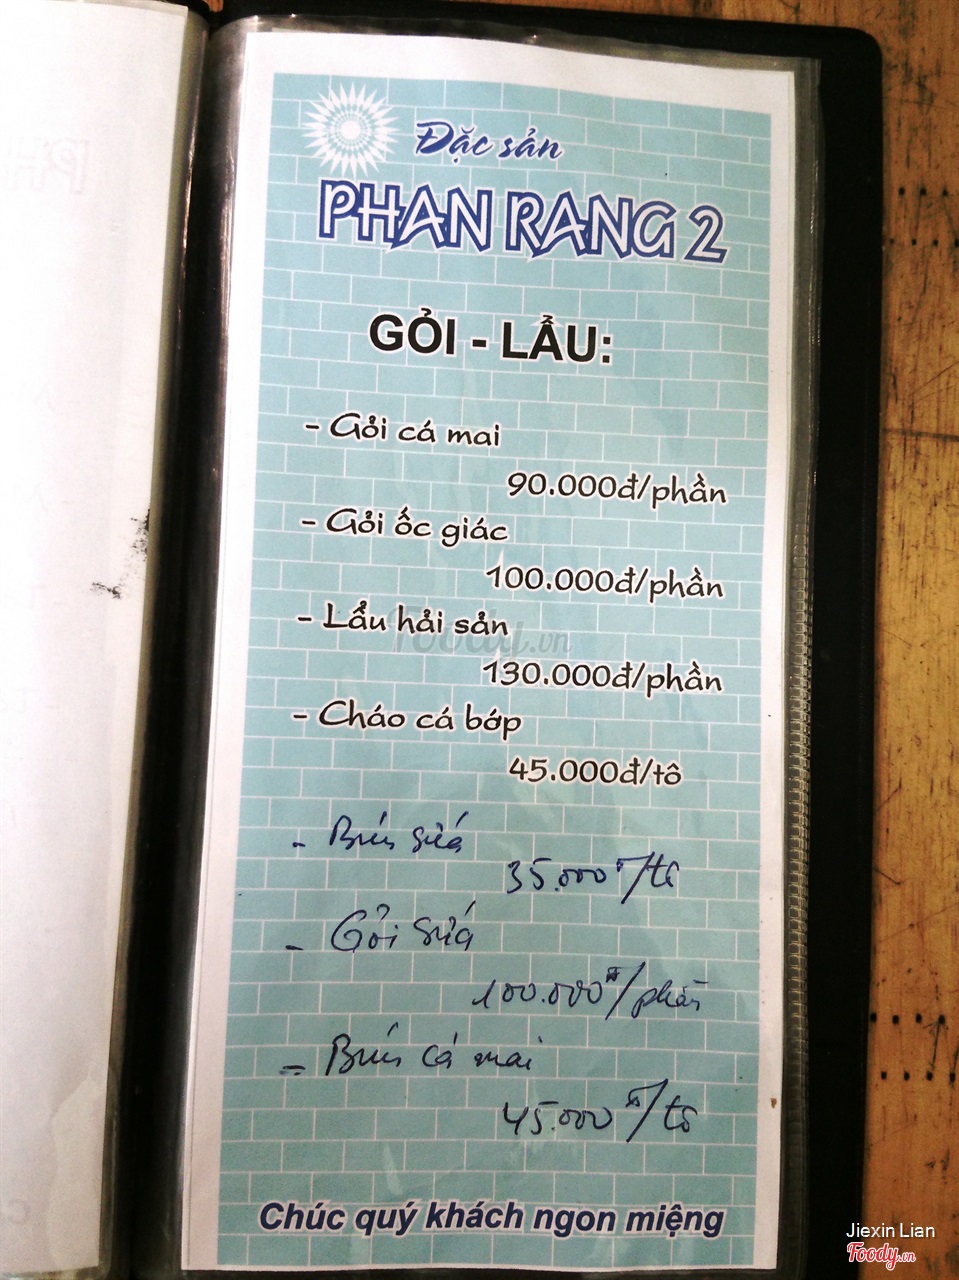 Đặc sản
PHAN RANG 2
GỎI - LẨU:
- Gỏi cá mai
90.000đ/phần
- Gỏi ốc giác
100.000đ/phần
- Lẩu hải sản
130.000đ/phần
- Cháo cá bớp
45.000đ/tô
- Bún sứá
35.000đ/tô
- Gỏi sứá
100.000đ/phần
- Bún cá mai
45.000đ/tô
Chúc quý khách ngon miệng
Foody.vn
Jiexin Lian
Foody.vn